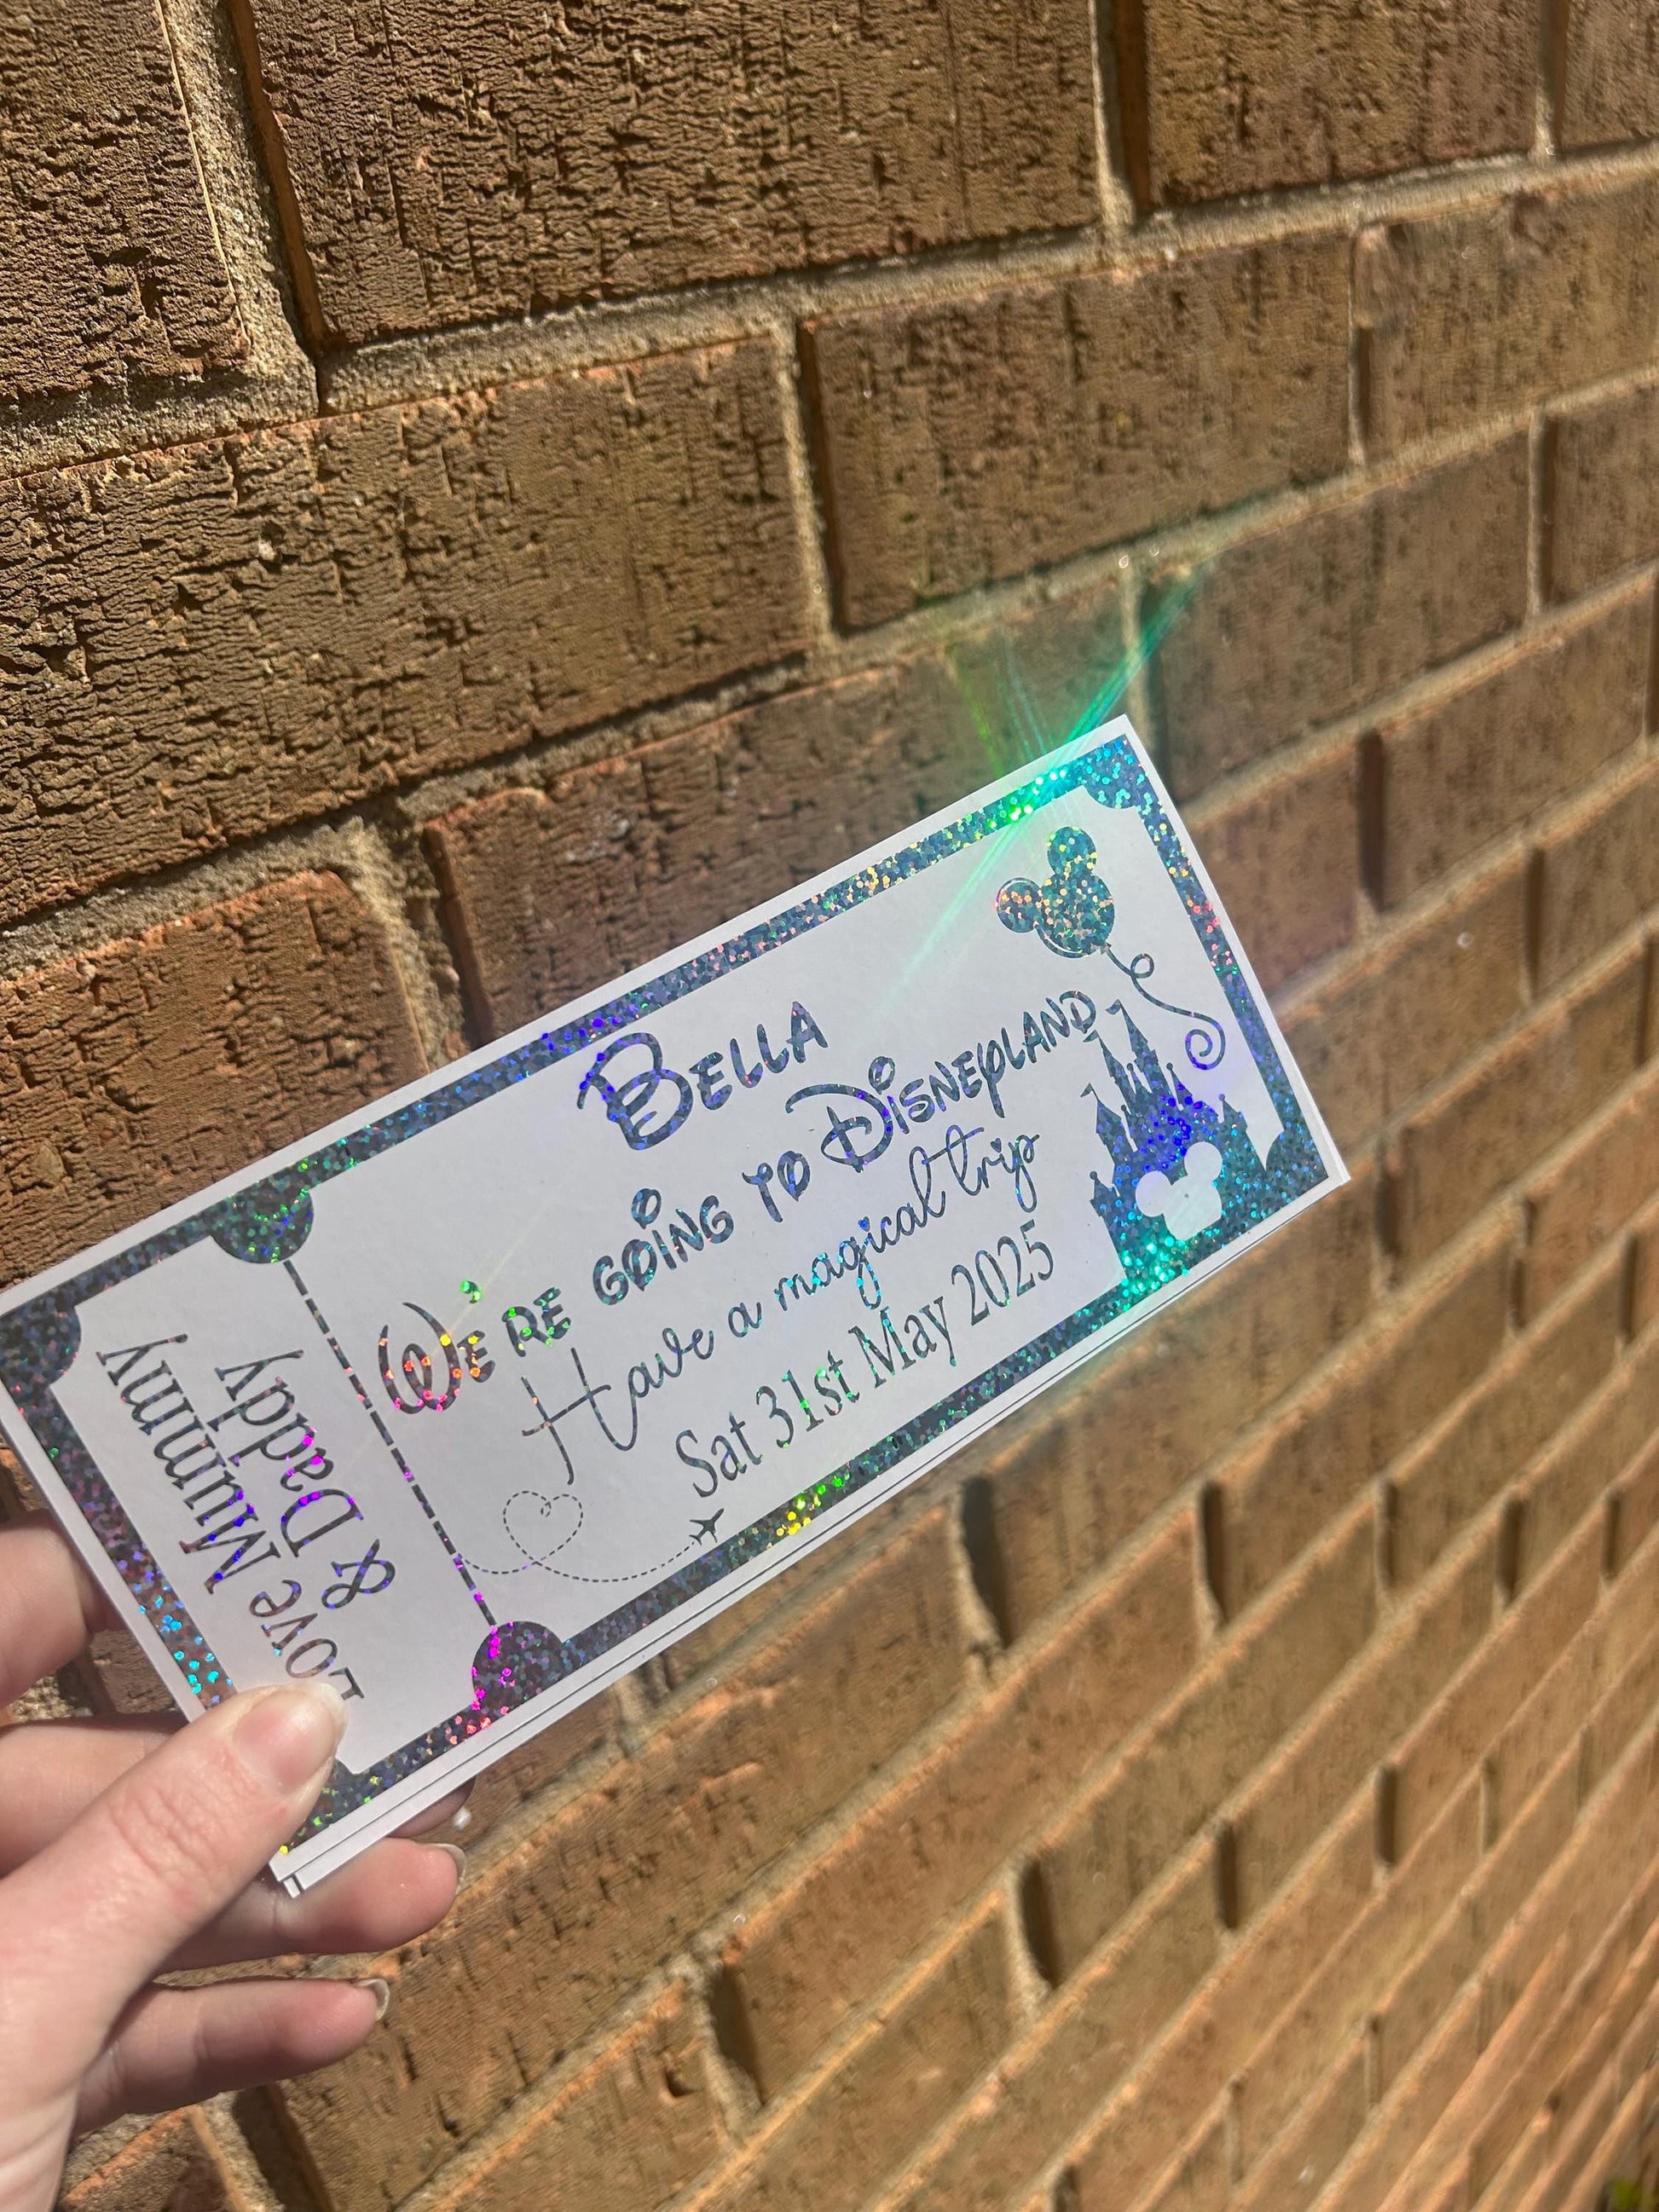 Bella
We're going to Disneyland
Have a magical trip
Sat 31st May 2025
Love Mummy
& Daddy